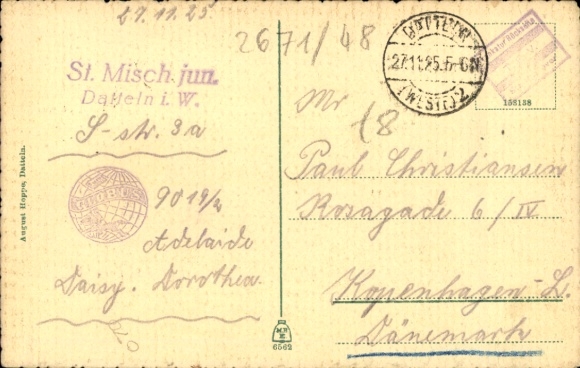 27.11.25
2671/48
DATTELN
27.11.25.5-6N
(WESTF) 2
158158
St. Misch jun.
Datteln i. W.
S-str. 3a
Mr
18
Paul Christiansen
Rosagade 6/IV
Kopenhagen-L.
Dänemark
9019/2
Adelaide
Daisy. Dorothea.
August Hoppe, Datteln.
6562